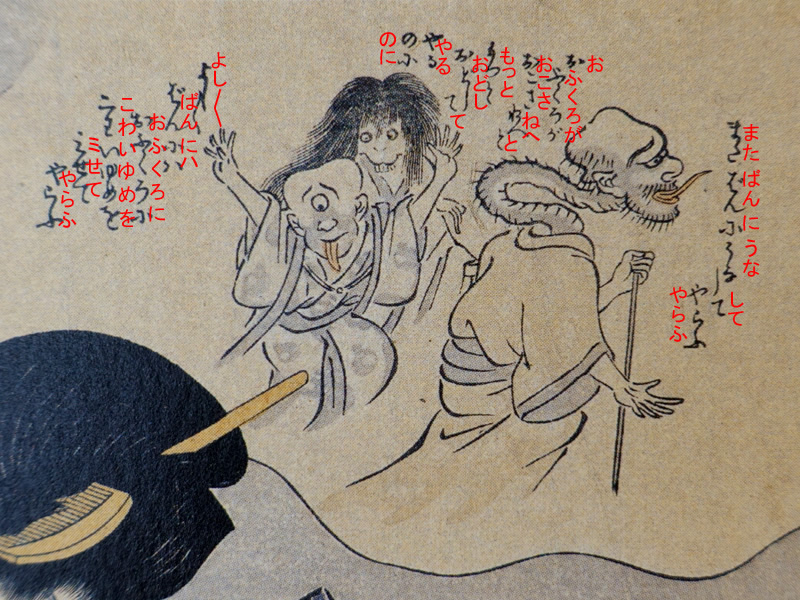 また ばん にうな
して
やらふ
おふくろが
おこさ ねへ
と
もっと
おどし
て
やる
のに
よし〱
ばん にハ
おふくろに
こわいゆめを
ミせて
やらふ